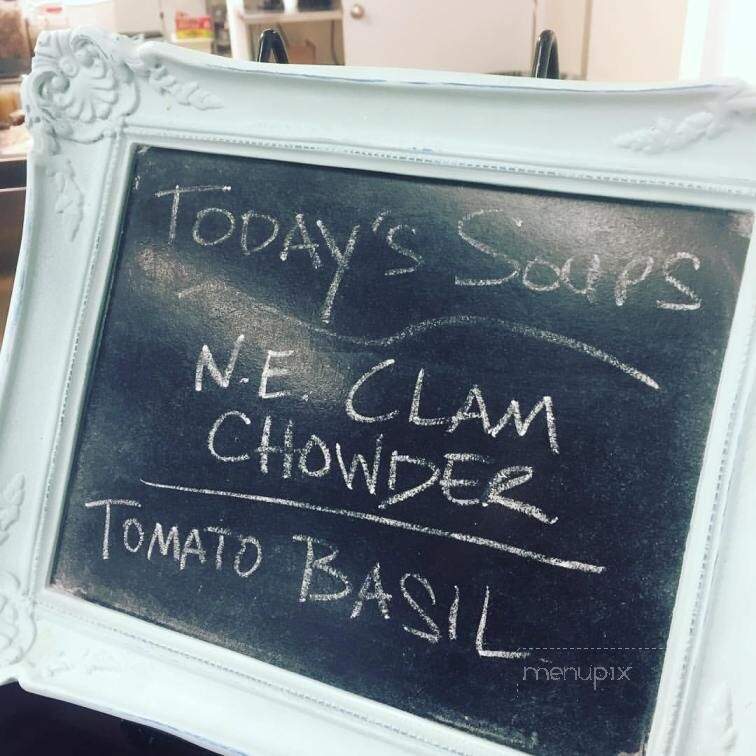 TODAY'S SOUPS
N.E. CLAM
CHOWDER
TOMATO BASIL
menupix